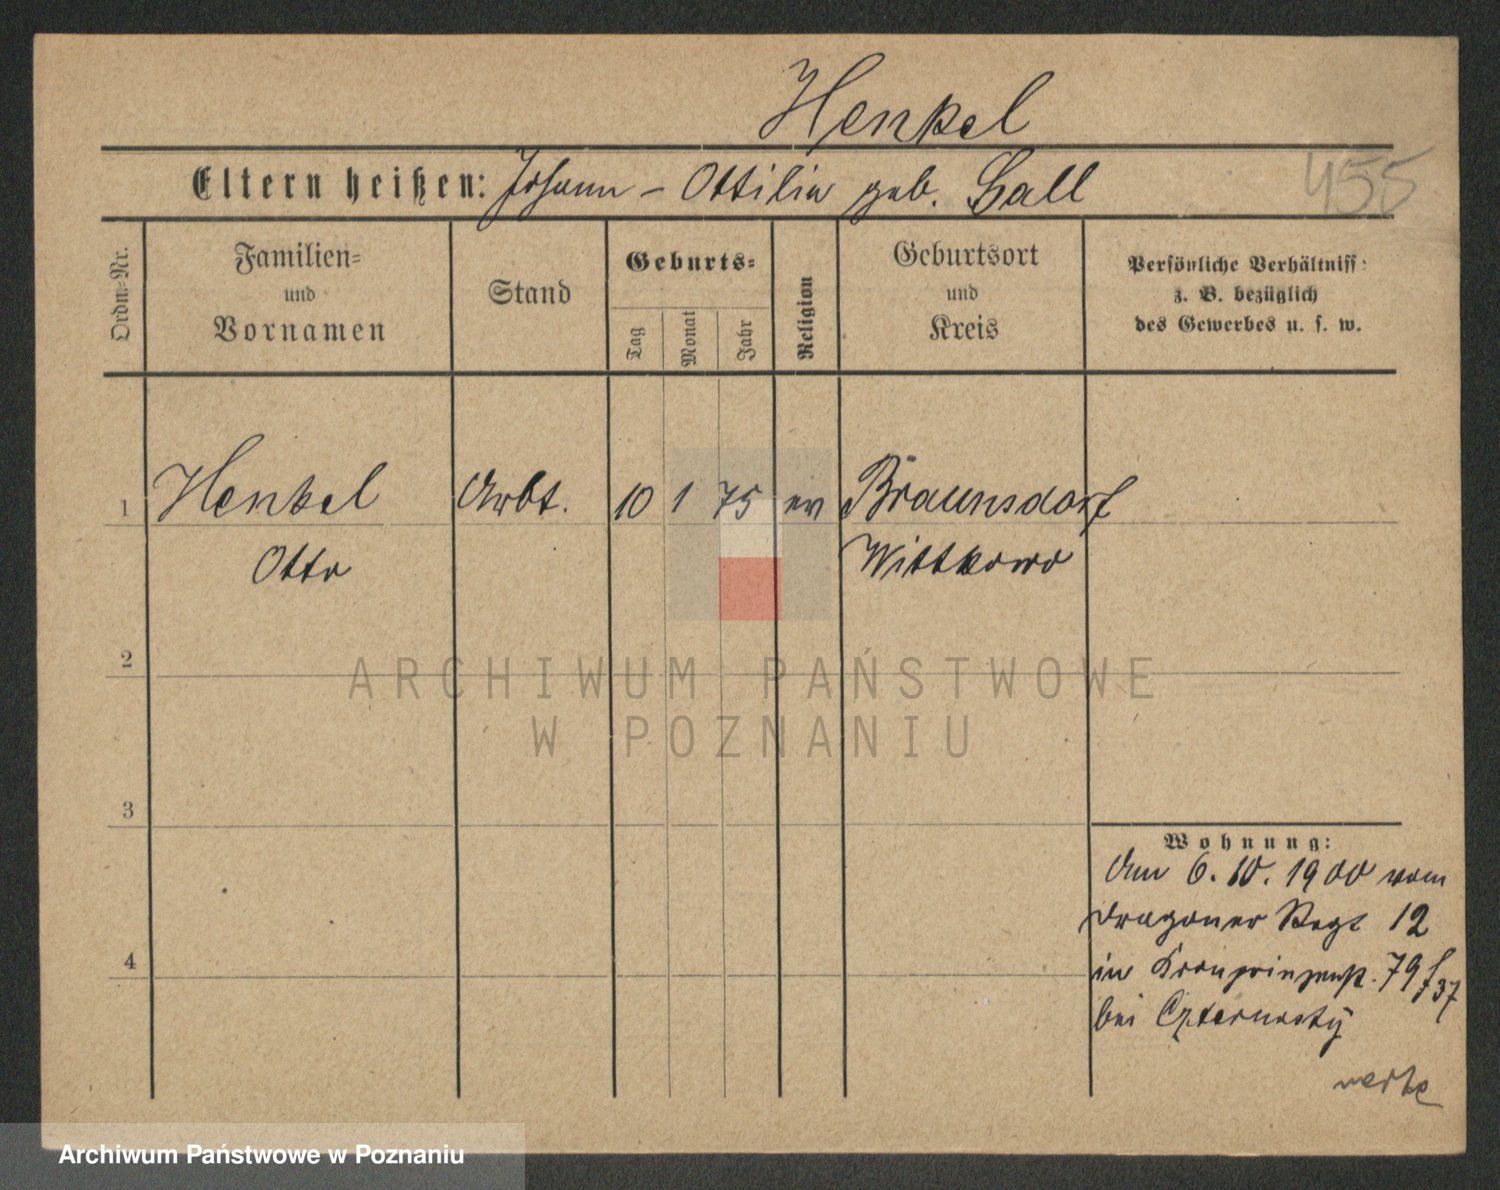 Henkel
Eltern heißen: Johann - Ottilie geb. Sall
455
Ordn.-Nr.
Familien-
und
Vornamen
Stand
Geburts-
Tag
Monat
Jahr
Religion
Geburtsort
und
Kreis
Persönliche Verhältniss
z. B. bezüglich
des Gewerbes u. s. w.
1 Henkel Arbt. 10 1 75 ev Braunsdorf
Otto Wittkowo
2
ARCHIWUM PAŃSTWOWE
W POZNANIU
3
Wohnung:
Am 6. 10. 1900 vom
Dragoner Regt 12
in Kronprinzenst. 79
bei
4
Archiwum Państwowe w Poznaniu